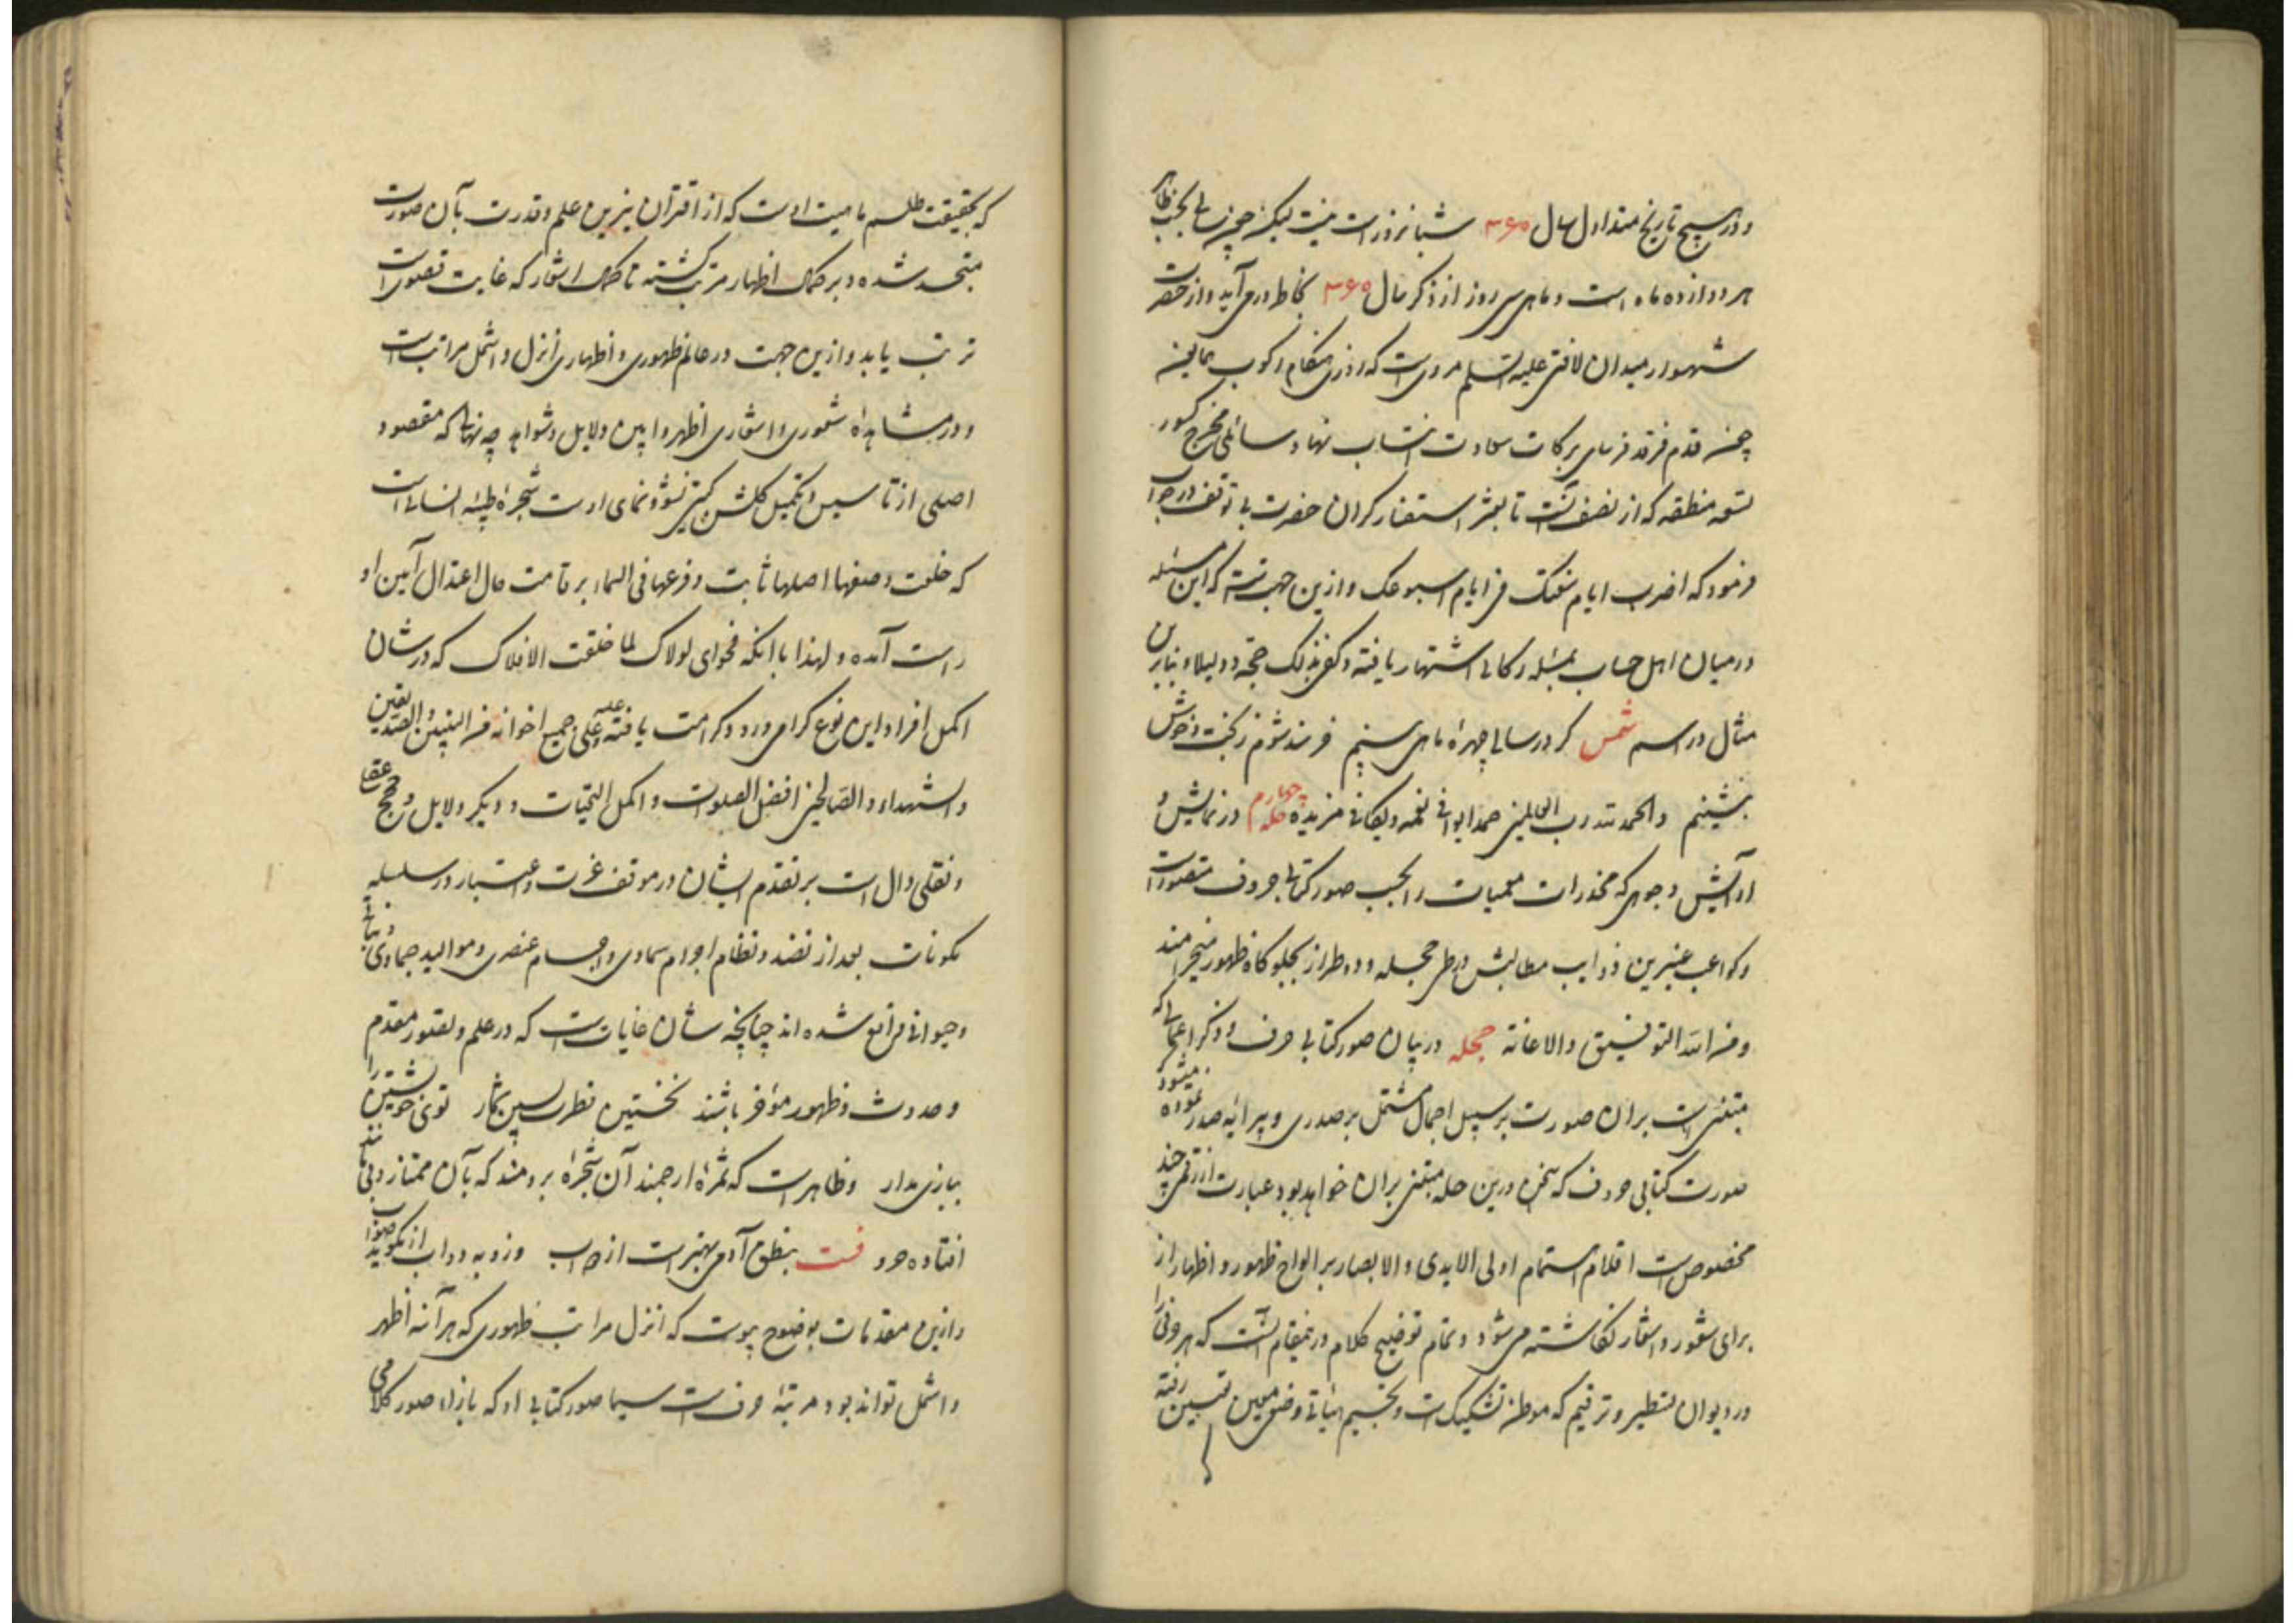 و در هیچ تاریخ متداول سال ۳۶۰ شبانروز راست نیست لیکن چون سالی بحسب ظاهر
هر دوازده ماه است و ماهی سی روز از ذکر سال ۳۶۰ بخاطر درمی‌آید و از حضرت
شهسوار میدان لافتی علیه السلم مرویست که روزی هنگام رکوب همایون
چون قدم فرقد فرسای برکات سعادت انتساب نهاد سائلی مخرج کسور
تسعه منطقه که از نصف است تا بعشر استفسار کرد آن حضرت بی توقف در جواب
فرمود که اضرب ایام سنتک فی ایام اسبوعک و ازین جهتست که این مسئله
در میان اهل حساب بمسئله رکابی اشتهار یافته و کفی بذلک حجة و دلیلا و بنابرین
مثال در اسم شمس گر در سالی چهرهٔ ماهی بینیم خرسند شویم ز بخت و خوش
بنشینیم والحمد لله رب العالمین حمدا یوافی نعمه و یکافی مزیده حله چهارم در نمایش و
آرایش وجوهی که مخدرات معمیات را بحسب صور کتابی حروف متصور است
وکواعب عنبرین ذوایب مطالبش در طی حجله و دو طراز بجلوه‌گاه ظهور منجر آمد
ومن الله التوفیق والاعانة حجله در بیان صور کتابی حرف و ذکر اعمالی که
مبتنی است بران صورت بر سبیل اجمال مشتمل بر صدری و پیرایه صدر نموده میشود
صورت کتابی حروف که سخن درین حله مبتنی بران خواهد بود عبارت از رقمی چند
مخصوص است اقلام استمام اولی الایدی والابصار بر الواح ظهور و اظهار از
برای شعور و اشعار نگاشته می‌شود و تمام توضیح کلام درینمقام آنست که هر حرفی را
در دیوان تسطیر و ترقیم که موطن تشکیک است و تجسیم هیأتی وضعی معین تعیین رفته
که بحقیقت طلسم ماهیت اوست که از اقتران نیرین علم و قدرت بآن صورت
متجسد شده و بر حکمت اظهار مترتب گشته تا حکمت اشعار که غایت قصوی است
ترتب یابد و ازین جهت در عالم ظهوری و اظهاری انزل و اشمل مراتب است
و در مشاهدهٔ شعوری و اشعاری اظهر و ابین دلایل و شواهد چه نهالی که مقصود
اصلی از تاسیس و تکمیل گلشن گیتی نشو و نمای اوست شجرهٔ طیبهٔ انسانی است
که خلعت وصفها اصلها ثابت و فرعها فی السماء بر قامت حال اعتدال آیین او
راست آمده و لهذا با آنکه فحوای لولاک لما خلقت الافلاک که در شان
اکمل افراد این نوع گرامی ورود کرامت یافته علیه وعلی جمیع اخوانه من النبیین والصدیقین
والشهداء والصالحین افضل الصلوات واکمل التحیات و دیگر دلایل و حجج عقلی
و نقلی دال است بر تقدم ایشان در موقف عزت و اعتبار در سلسلهٔ
مکونات بعد از نضد و نظام اجرام سماوی و اجسام عنصری و موالید جمادی و نباتی
و حیوانی واقع شده‌اند چنانچه شان غایاتست که در علم و تصور مقدم
و حدوث و ظهور مؤخر باشند نخستین فطرت پسین شمار تویی خویشتن را
ببازی مدار و ظاهرست که ثمرهٔ ارجمند آن شجرهٔ برومند که بآن ممتاز و بی‌مانند
افتاده حروفست بنطق آدمی بهترست از دواب وز و به دواب ار نگوید صواب
و ازین مقدمات بوضوح پیوست که انزل مراتب ظهوری که هرآینه اظهر
و اشمل تواند بود مرتبهٔ حرف است سیما صور کتابی او که بازاء صور کلامی